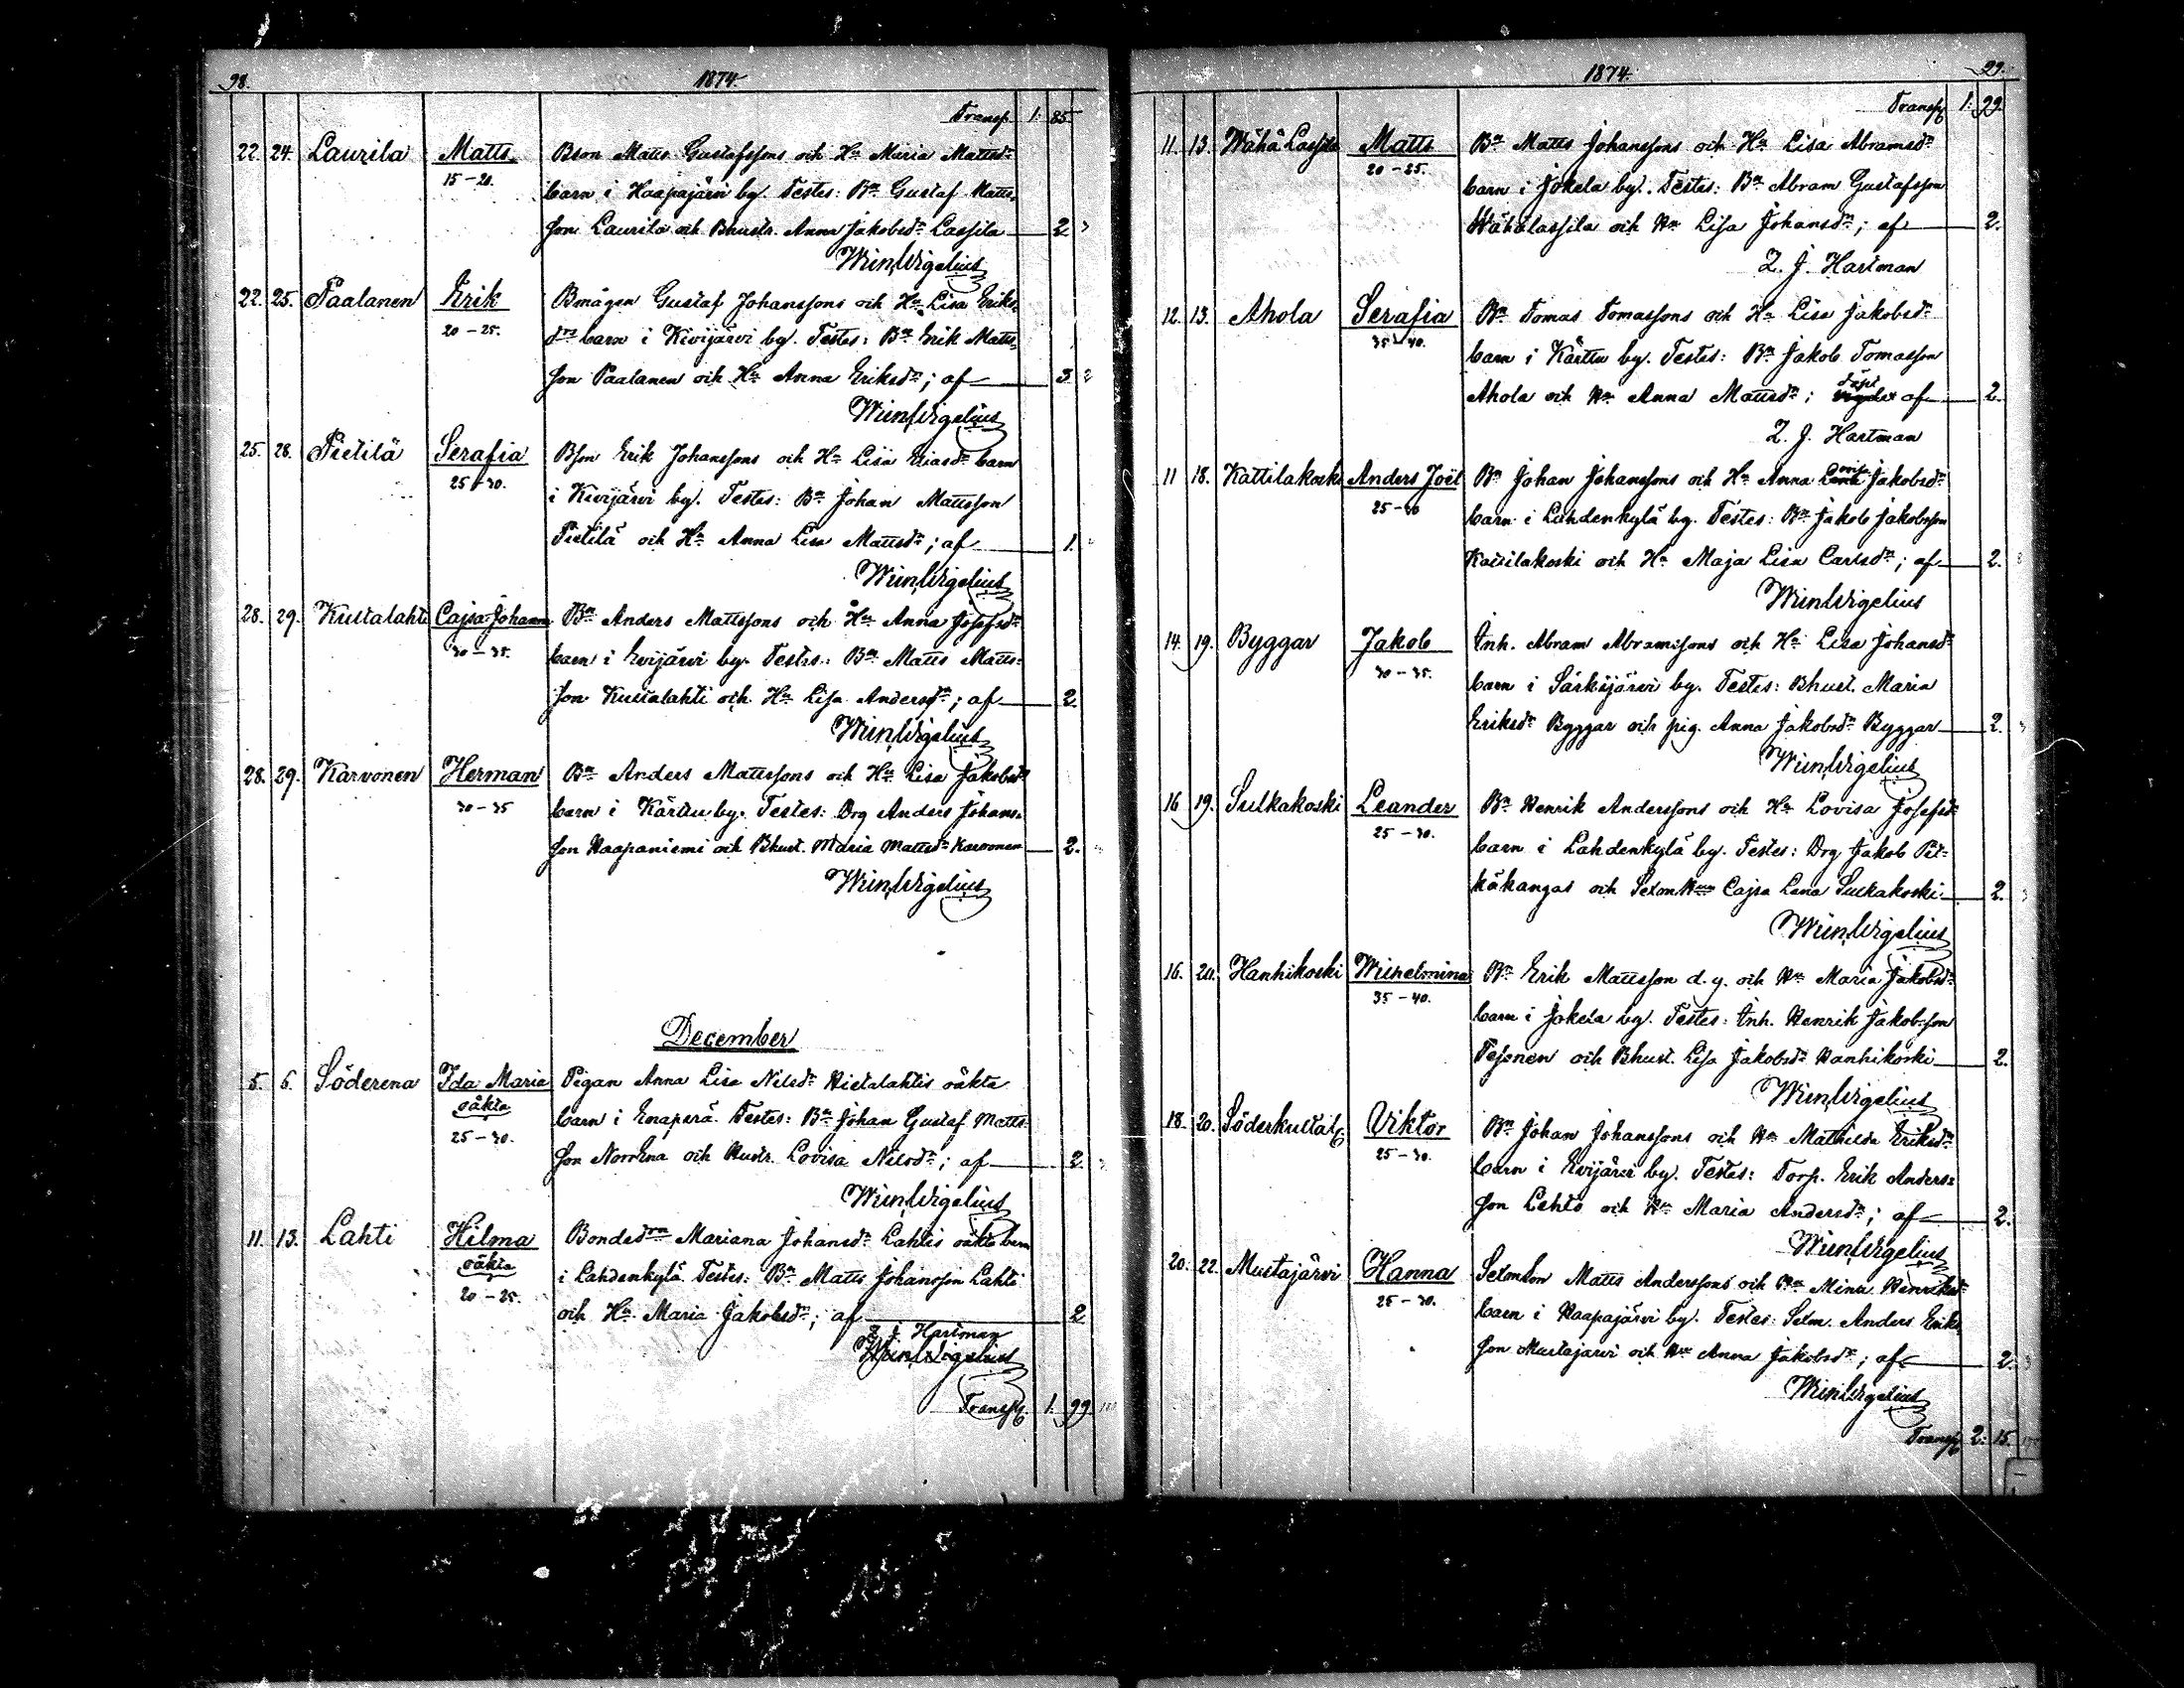 98. 1874.
Transp. 1: 85.
22. 24. Laurila Matts Bson Matts Gustafssons och Hu Maria Mattsdr
15-20. barn i Haapajärvi by. Testes: Bn Gustaf Matts-
son Laurila och Bhustr. Anna Jakobsdr Lassila 2
Wm Wigelius
22. 25. Paalanen Erik Bmågen Gustaf Johanssons och Hu Lisa Eriks-
20-25. drs barn i Kivijärvi by. Testes: Bn Erik Matts-
son Paalanen och Hu Anna Eriksdr; af 3
Wm Wigelius
25. 28. Pietilä Serafia Bson Erik Johanssons och Hu Lisa Eliasdr barn
25-30. i Kivijärvi by. Testes: Bn Johan Mattsson
Pietilä och Hu Anna Lisa Mattsdr; af 1.
Wm Wigelius
28. 29. Kultalahti Cajsa Johanna Bn Anders Mattssons och Hu Anna Josefsdr
30-35. barn i Evijärvi by. Testes: Bn Matts Matts-
son Kultalahti och Hu Lisa Andersdr; af 2.
Wm Wigelius
28. 29. Karvonen Herman Bn Anders Mattssons och Hu Lisa Jakobsdr
30-35 barn i Särkikylä by. Testes: Drg Anders Johans-
son Haapaniemi och Bhust. Maria Mattsdr Karvonen 2.
Wm Wigelius
December
5. 6. Söderena Ida Maria Pigan Anna Lisa Nilsdr Hietalahtis oäkta
oäkta barn i Enaperä. Testes: Bn Johan Gustaf Matts-
25-30. son Norrena och Hustr. Lovisa Nilsdr; af 2.
Wm Wigelius
11. 13. Lahti Hilma Bondedrn Mariana Johansdr Lahtis oäkta barn
oäkta i Lahdenkylä. Testes: Bn Matts Johansson Lahti
20-25. och Hu Maria Jakobsdr; af 2
Z. J. Hartman
Wm Wigelius
Transp. 1. 99
1874. 99.
Transp 1: 99
11. 13. Wähä Lassila Matts Bn Matts Johanssons och Hu Lisa Abramsdr
20-25. barn i Jokela by. Testes: Bn Abram Gustafsson
Wähälassila och Hu Lisa Johansdr; af 2.
Z. J. Hartman
12. 13. Ahola Serafia Bn Tomas Tomassons och Hu Lisa Jakobsdr
35-40. barn i Särkikylä by. Testes: Bn Jakob Tomasson
Ahola och Hu Anna Mattsdr; döpt af 2.
Z. J. Hartman
11 18. Kattilakoski Anders Joël Bn Johan Johanssons och Hu Anna Lovisa Jakobsdr
25-30 barn i Lahdenkylä by. Testes: Bn Jakob Jakobsson
Kattilakoski och Hu Maja Lisa Carlsdr; af 2.
Wm Wigelius
14. 19. Byggar Jakob Inh. Abram Abramssons och Hu Lisa Johansdr
30-35. barn i Särkijärvi by. Testes: Bhust. Maria
Eriksdr Byggar och pig. Anna Jakobsdr Byggar 2.
Wm Wigelius
16 19. Sulkakoski Leander Bn Henrik Anderssons och Hu Lovisa Josefsdr
25-30. barn i Lahdenkylä by. Testes: Drg Jakob Pit-
käkangas och Sexm. Hun Cajsa Lena Sulkakoski 2.
Wm Wigelius
16. 20. Hanhikoski Wilhelmina Bn Erik Mattsson d.y. och Hu Maria Jakobsdr
35-40. barn i Jokela by. Testes: Inh. Henrik Jakobsson
Tejonen och Bhust. Lisa Jakobsdr Hanhikoski 2.
Wm Wigelius
18. 20. Söderkultal. Viktor Bn Johan Johanssons och Hu Mathilda Eriksdr
25-30. barn i Evijärvi by. Testes: Torp. Erik Anders-
son Lehto och Hu Maria Andersdr; af 2.
Wm Wigelius
20. 22 Mustajärvi Hanna Sexmson Matts Anderssons och Hu Mina Henriksdr
25-30. barn i Haapajärvi by. Testes: Sexm. Anders Eriks-
son Mustajärvi och Hu Anna Jakobsdr; af 2.
Wm Wigelius
Transp 2: 15.